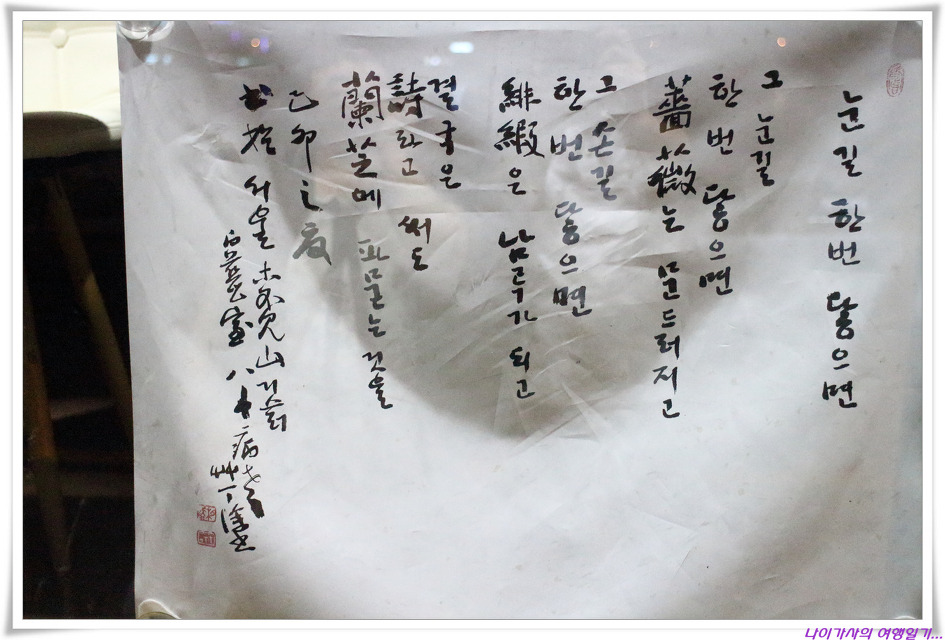 눈길 한번 닿으면
그 눈길
한번 닿으면
薔薇는 문드러지고
그 손길
한번 닿으면
緋緞은 남루가 되고
결국은
詩라고 써도
蘭芝에 파묻는 것을
己卯之夏
서울 木覓山 기슭
八十病老
나이가사의 여행일기...